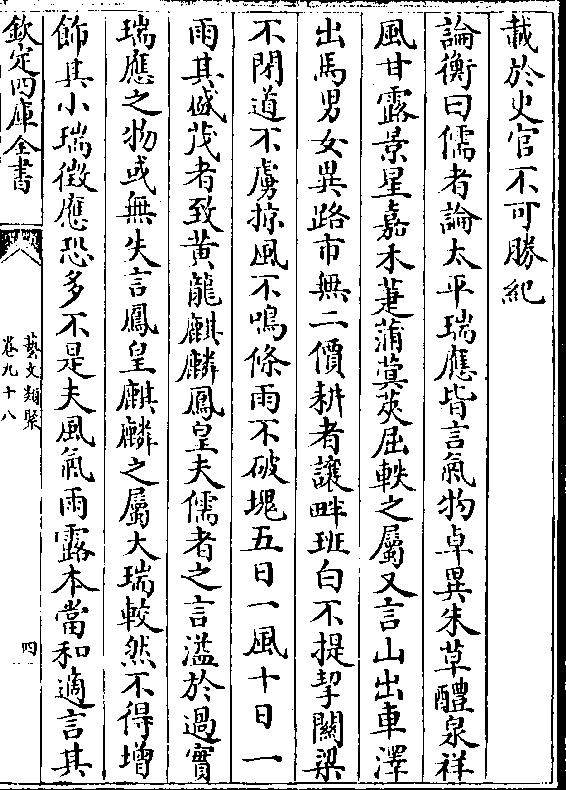 載於史官不可勝紀
論衡曰儒者論太平瑞應皆言氣物卓異朱草醴泉祥
風甘露景星嘉禾萐蒲蓂莢屈軼之屬又言山出車澤
出馬男女異路市無二價耕者讓畔班白不提挈關梁
不閉道不虜掠風不鳴條雨不破塊五日一風十日一
雨其盛茂者致黃龍麒麟鳳皇夫儒者之言溢於過實
瑞應之物或無失言鳳皇麒麟之屬大瑞較然不得增
飾其小瑞徵應恐多不是夫風氣雨露本當和適言其
欽定四庫全書
藝文類聚
卷九十八
四